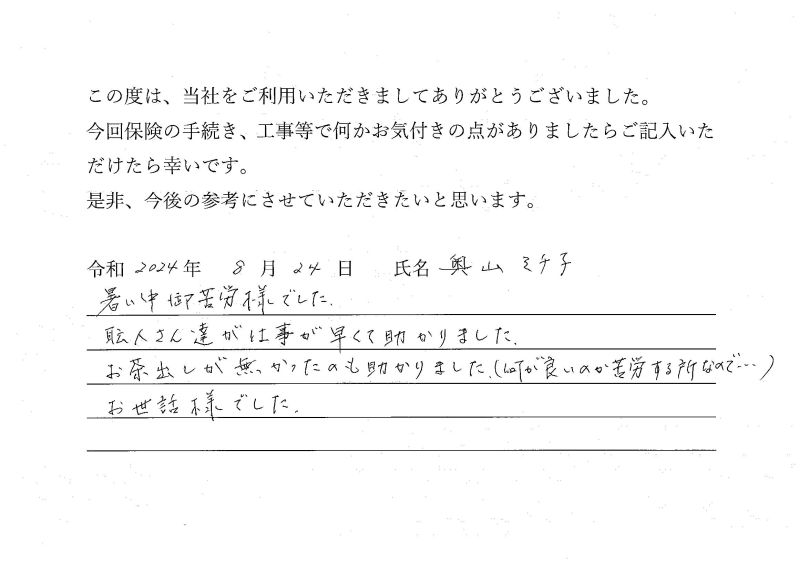 この度は、当社をご利用いただきましてありがとうございました。
今回保険の手続き、工事等で何かお気付きの点がありましたらご記入いた
だけたら幸いです。
是非、今後の参考にさせていただきたいと思います。
令和 2024年 8月 24日 氏名 奥山 ミチ子
暑い中御苦労様でした.
職人さん達が仕事が早くて助かりました.
お茶出しが無かったのも助かりました.(何が良いのか苦労する所なので…)
お世話様でした.